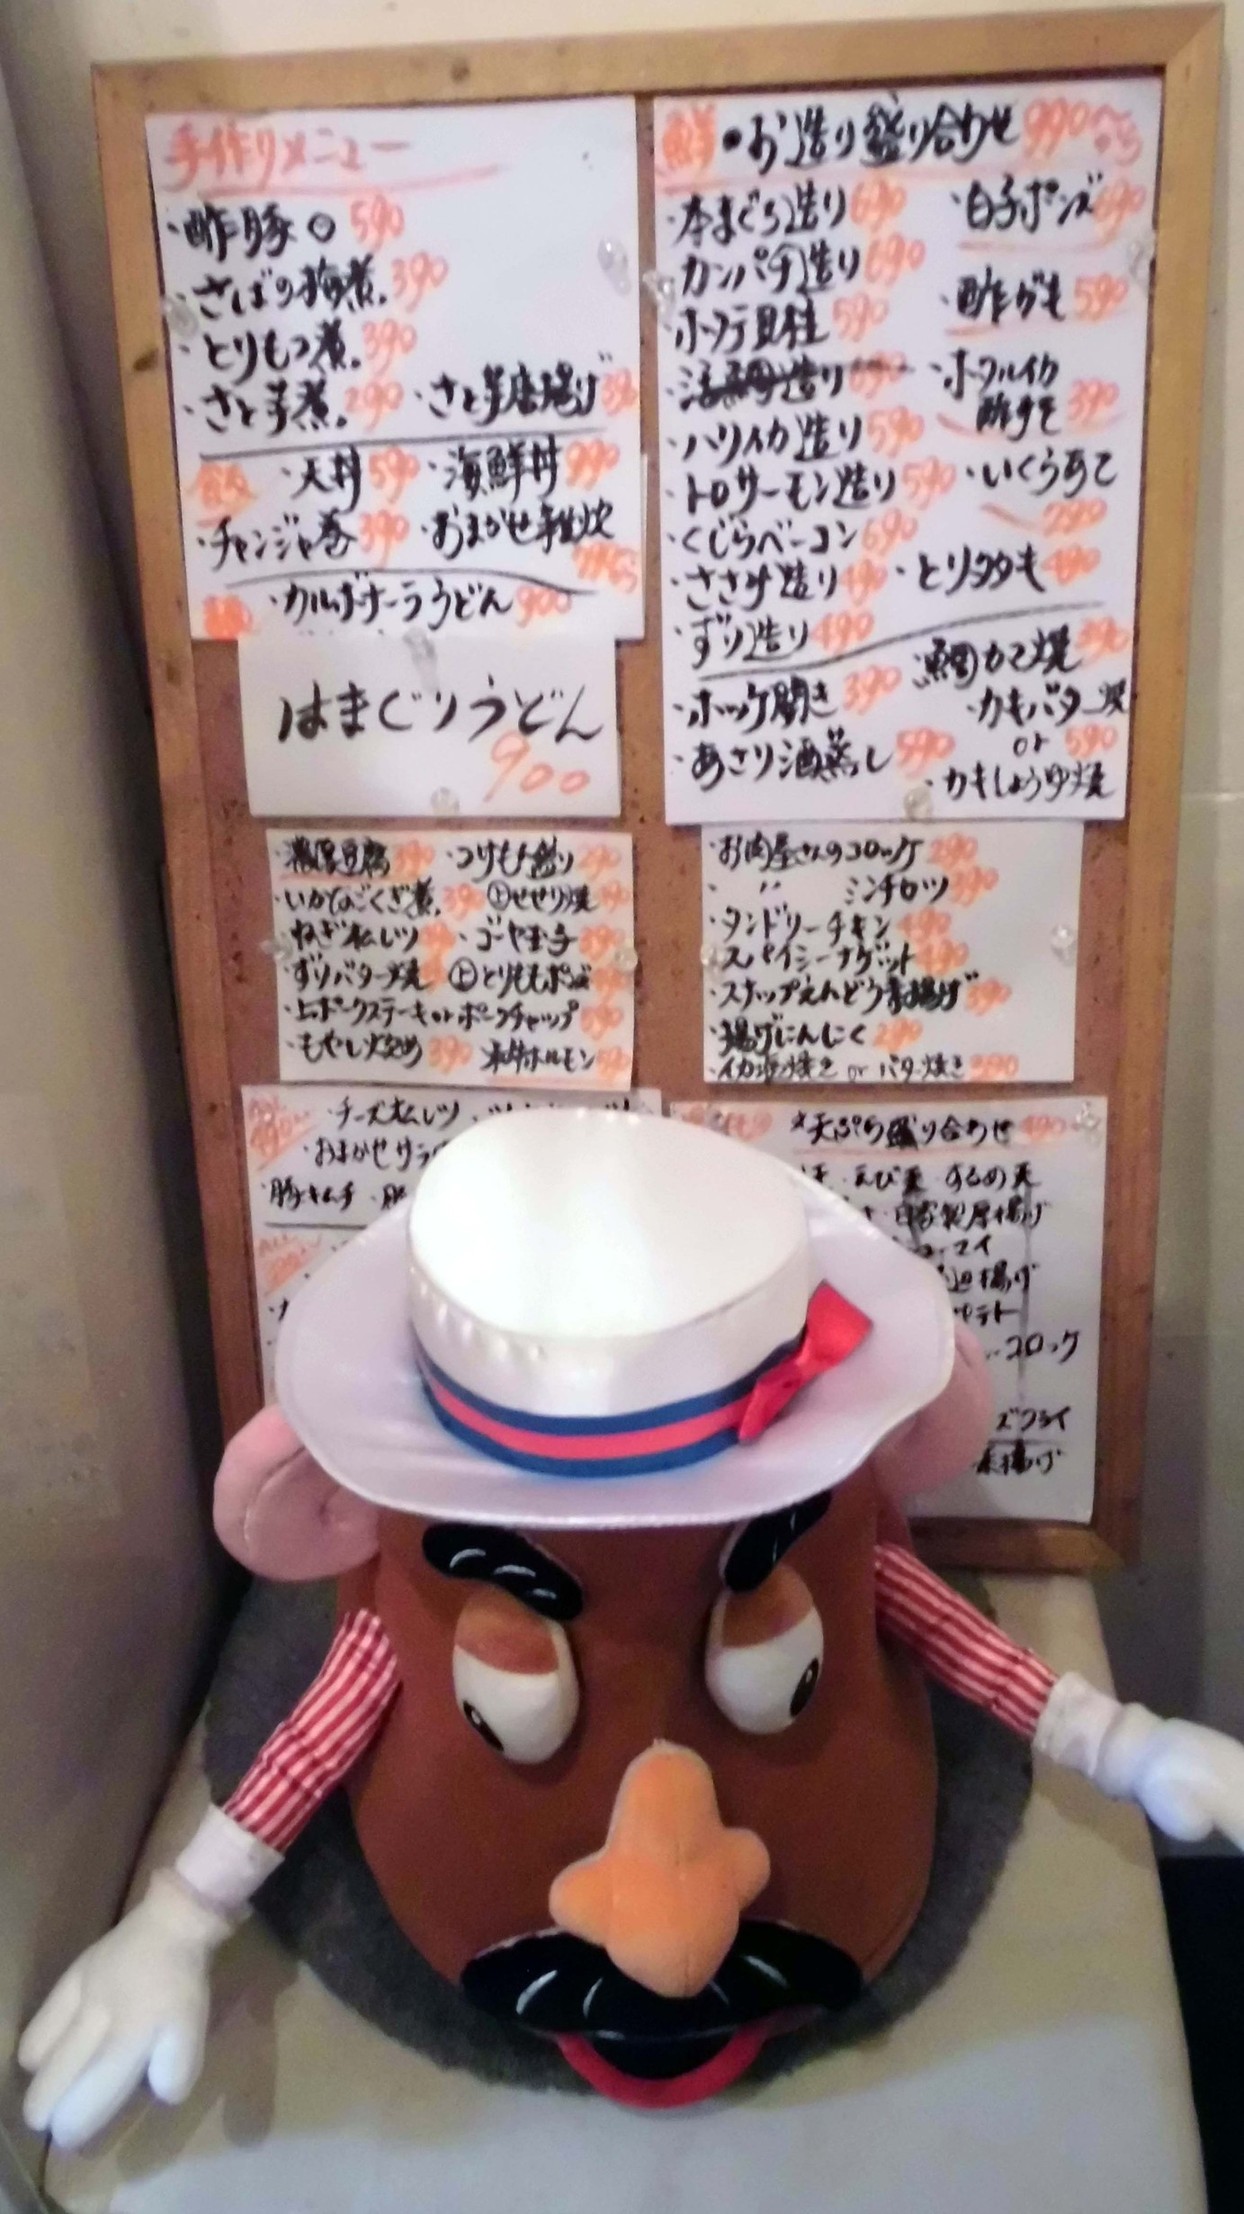 手作りメニュー
・酢豚 590
・さばの梅煮 390
・とりもつ煮 390
・さと芋煮 290 ・さと芋唐揚げ
・天丼 590 ・海鮮丼 990
・チャンジャ巻 390 ・おまかせ雑炊
・カルボナーラうどん 900
はまぐりうどん
900
・濃厚豆腐 390 ・つけもん盛り 290
・いかなごくぎ煮 390 上せせり焼
・ねぎオムレツ ・ゴーヤ玉子
・ずりバター焼 上とりももポン酢
・上ポークステーキorポークチャップ 590
・もやし炒め 390
・チーズオムレツ
・おまかせサラ
・豚キムチ
鮮・お造り盛り合わせ 990〜
・本まぐろ造り 690 ・白子ポンズ 690
・カンパチ造り 690
・ホタテ貝柱 590 ・酢がき 590
・活鯛造り 690 ・ホタルイカ
酢みそ 390
・ハリイカ造り 590
・トロサーモン造り 590 ・いくらあて
290
・くじらベーコン 690
・ささみ造り 490 ・とりタタキ 490
・ずり造り 490
・鯛カマ焼 390
・ホッケ開き 390 ・カキバター焼
or 590
・あさり酒蒸し 590 ・カキしょうゆ焼
・お肉屋さんのコロッケ 290
・〃 ミンチカツ 390
・タンドリーチキン 490
・スパイシーナゲット 490
・スナップえんどう素揚げ 390
・揚げにんにく 290
・イカ塩焼き or バター焼き 390
天ぷら盛り合わせ 490
えび天 するめ天
自家製厚揚げ
コロッケ
ズフライ
素揚げ